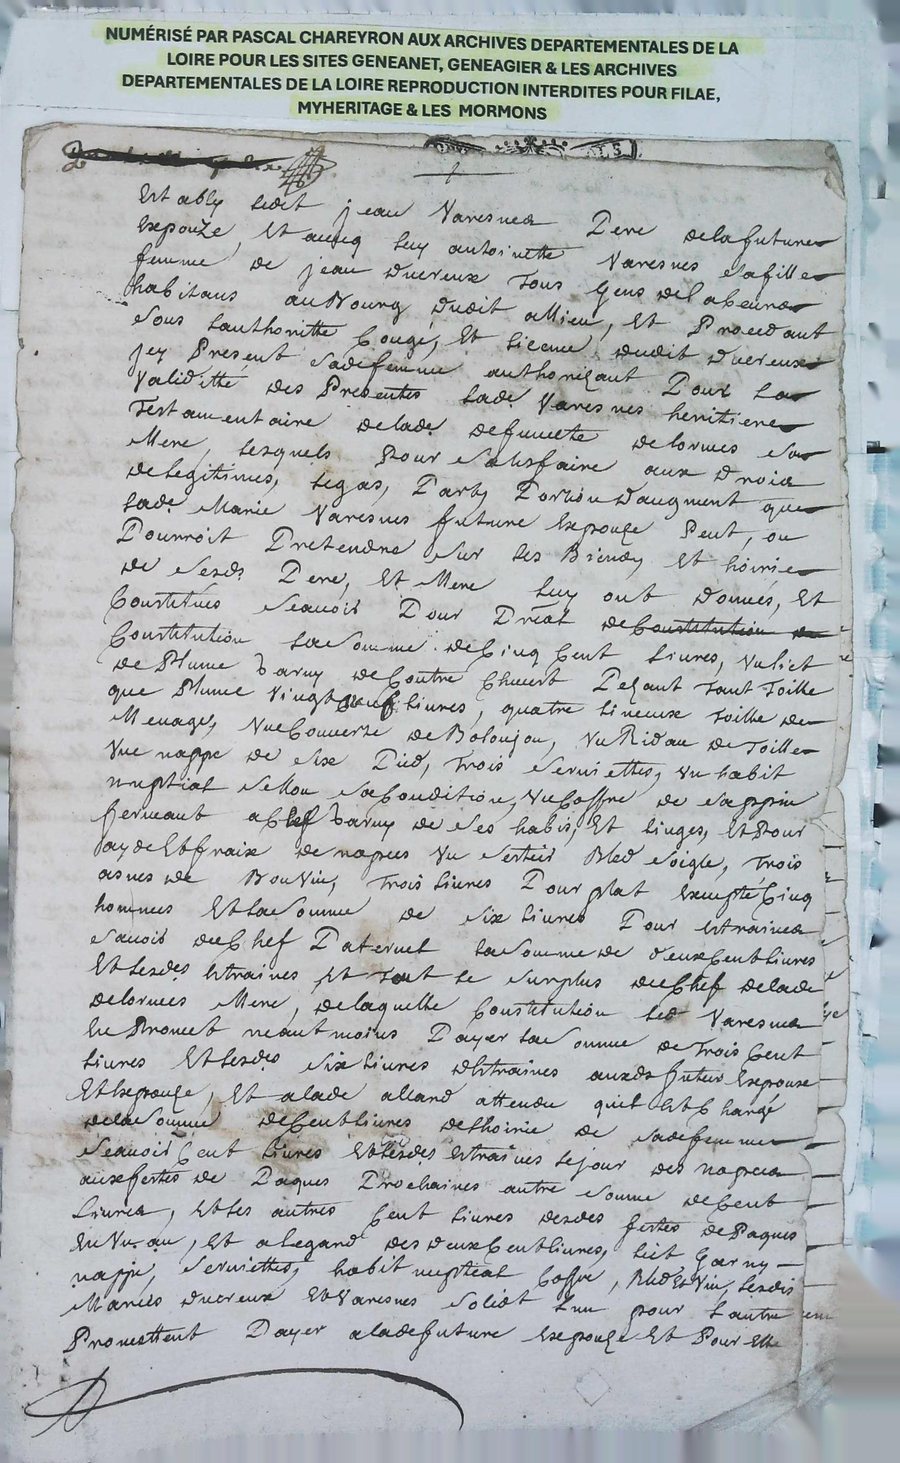 NUMÉRISÉ PAR PASCAL CHAREYRON AUX ARCHIVES DEPARTEMENTALES DE LA
LOIRE POUR LES SITES GENEANET, GENEAGIER & LES ARCHIVES
DEPARTEMENTALES DE LA LOIRE REPRODUCTION INTERDITES POUR FILAE,
MYHERITAGE & LES MORMONS
Estably ledit jean Varesnes Pere delafuture
Expouze, Et avecq luy antoinette Varesnes safille
femme de jean ducreux Tous Gens delabeurs
habitans auBourg dudit allieu, Et Procedant
Sous Lauthoritté Congé, Et licence dudit ducreux
jcy Present Sadefemme authorizant Pour La
Validitté des Presentes Lade Varesnes heritiere
Testamentaire delade deffuncte delormes Sa
Mere, Lesquels Pour Satisfaire aux Droics
deLegitimes, Legas, Part, Portion daugment que
Lade Marie Varesnes future Expouze Peut, ou
Pourroit Pretendre Sur Les Biens, Et hoirie
de Sesds Pere, Et Mere Luy ont donnés, Et
Constitués Scavoir Pour Dot deConstitution de
Constitution LaSomme deCinq Cent Livres, VnLict
de Plume Garny deCoutre Chuert Pezant Tant Toille
que Plume Vingt neuf Livres, quatre Linceux Toille de
Menage, VneCouverte deBoloujou, VnRidau de Toille
Vne nappe de Six Pied, Trois Serviettes, Vn habit
nuptial Sellon SaCondition, VnCoffre de Sappin
fermant aClef Garny de Ses habis, Et Linges, EtPour
aydeEtfraix de nopces Vn Sestier Bled Seigle, Trois
asnes de Bon Vin, Trois Livres Pour plat Excepté Cinq
hommes EtLaSomme de Six Livres Pour Estraines
Scavoir deChef Paternel LaSomme de deuxCentLivres
EtLesdes Estraines Et Tout Le Surplus deChef delade
delormes Mere, delaquelle Constitution Led Varesnes
En Promet neantmoins Payer LaSomme de Trois Cent
Livres EtLesdes Six Livres dEstraines auxds futur Expoux
EtExpouze, Et alade allard attendu quil EstChargé
delaSomme deCentLivres delhoirie de Sadefemme
Scavoir Cent Livres EtLesdes Estraines Lejour des nopces
auxfestes de Paques Prochaines autre Somme deCent
Livres, EtLes autres Cent Livres desdes festes dePaques
En Vn an, Et alegard des deuxCentlivres, Lict Garny
nappe, Serviettes, habit nuptial Coffre, BledEtVin, Lesdis
Mariés ducreux EtVaresnes Solidt Lun pour Lautre
Promettent Payer aladefuture Expouze Et Pour Elle